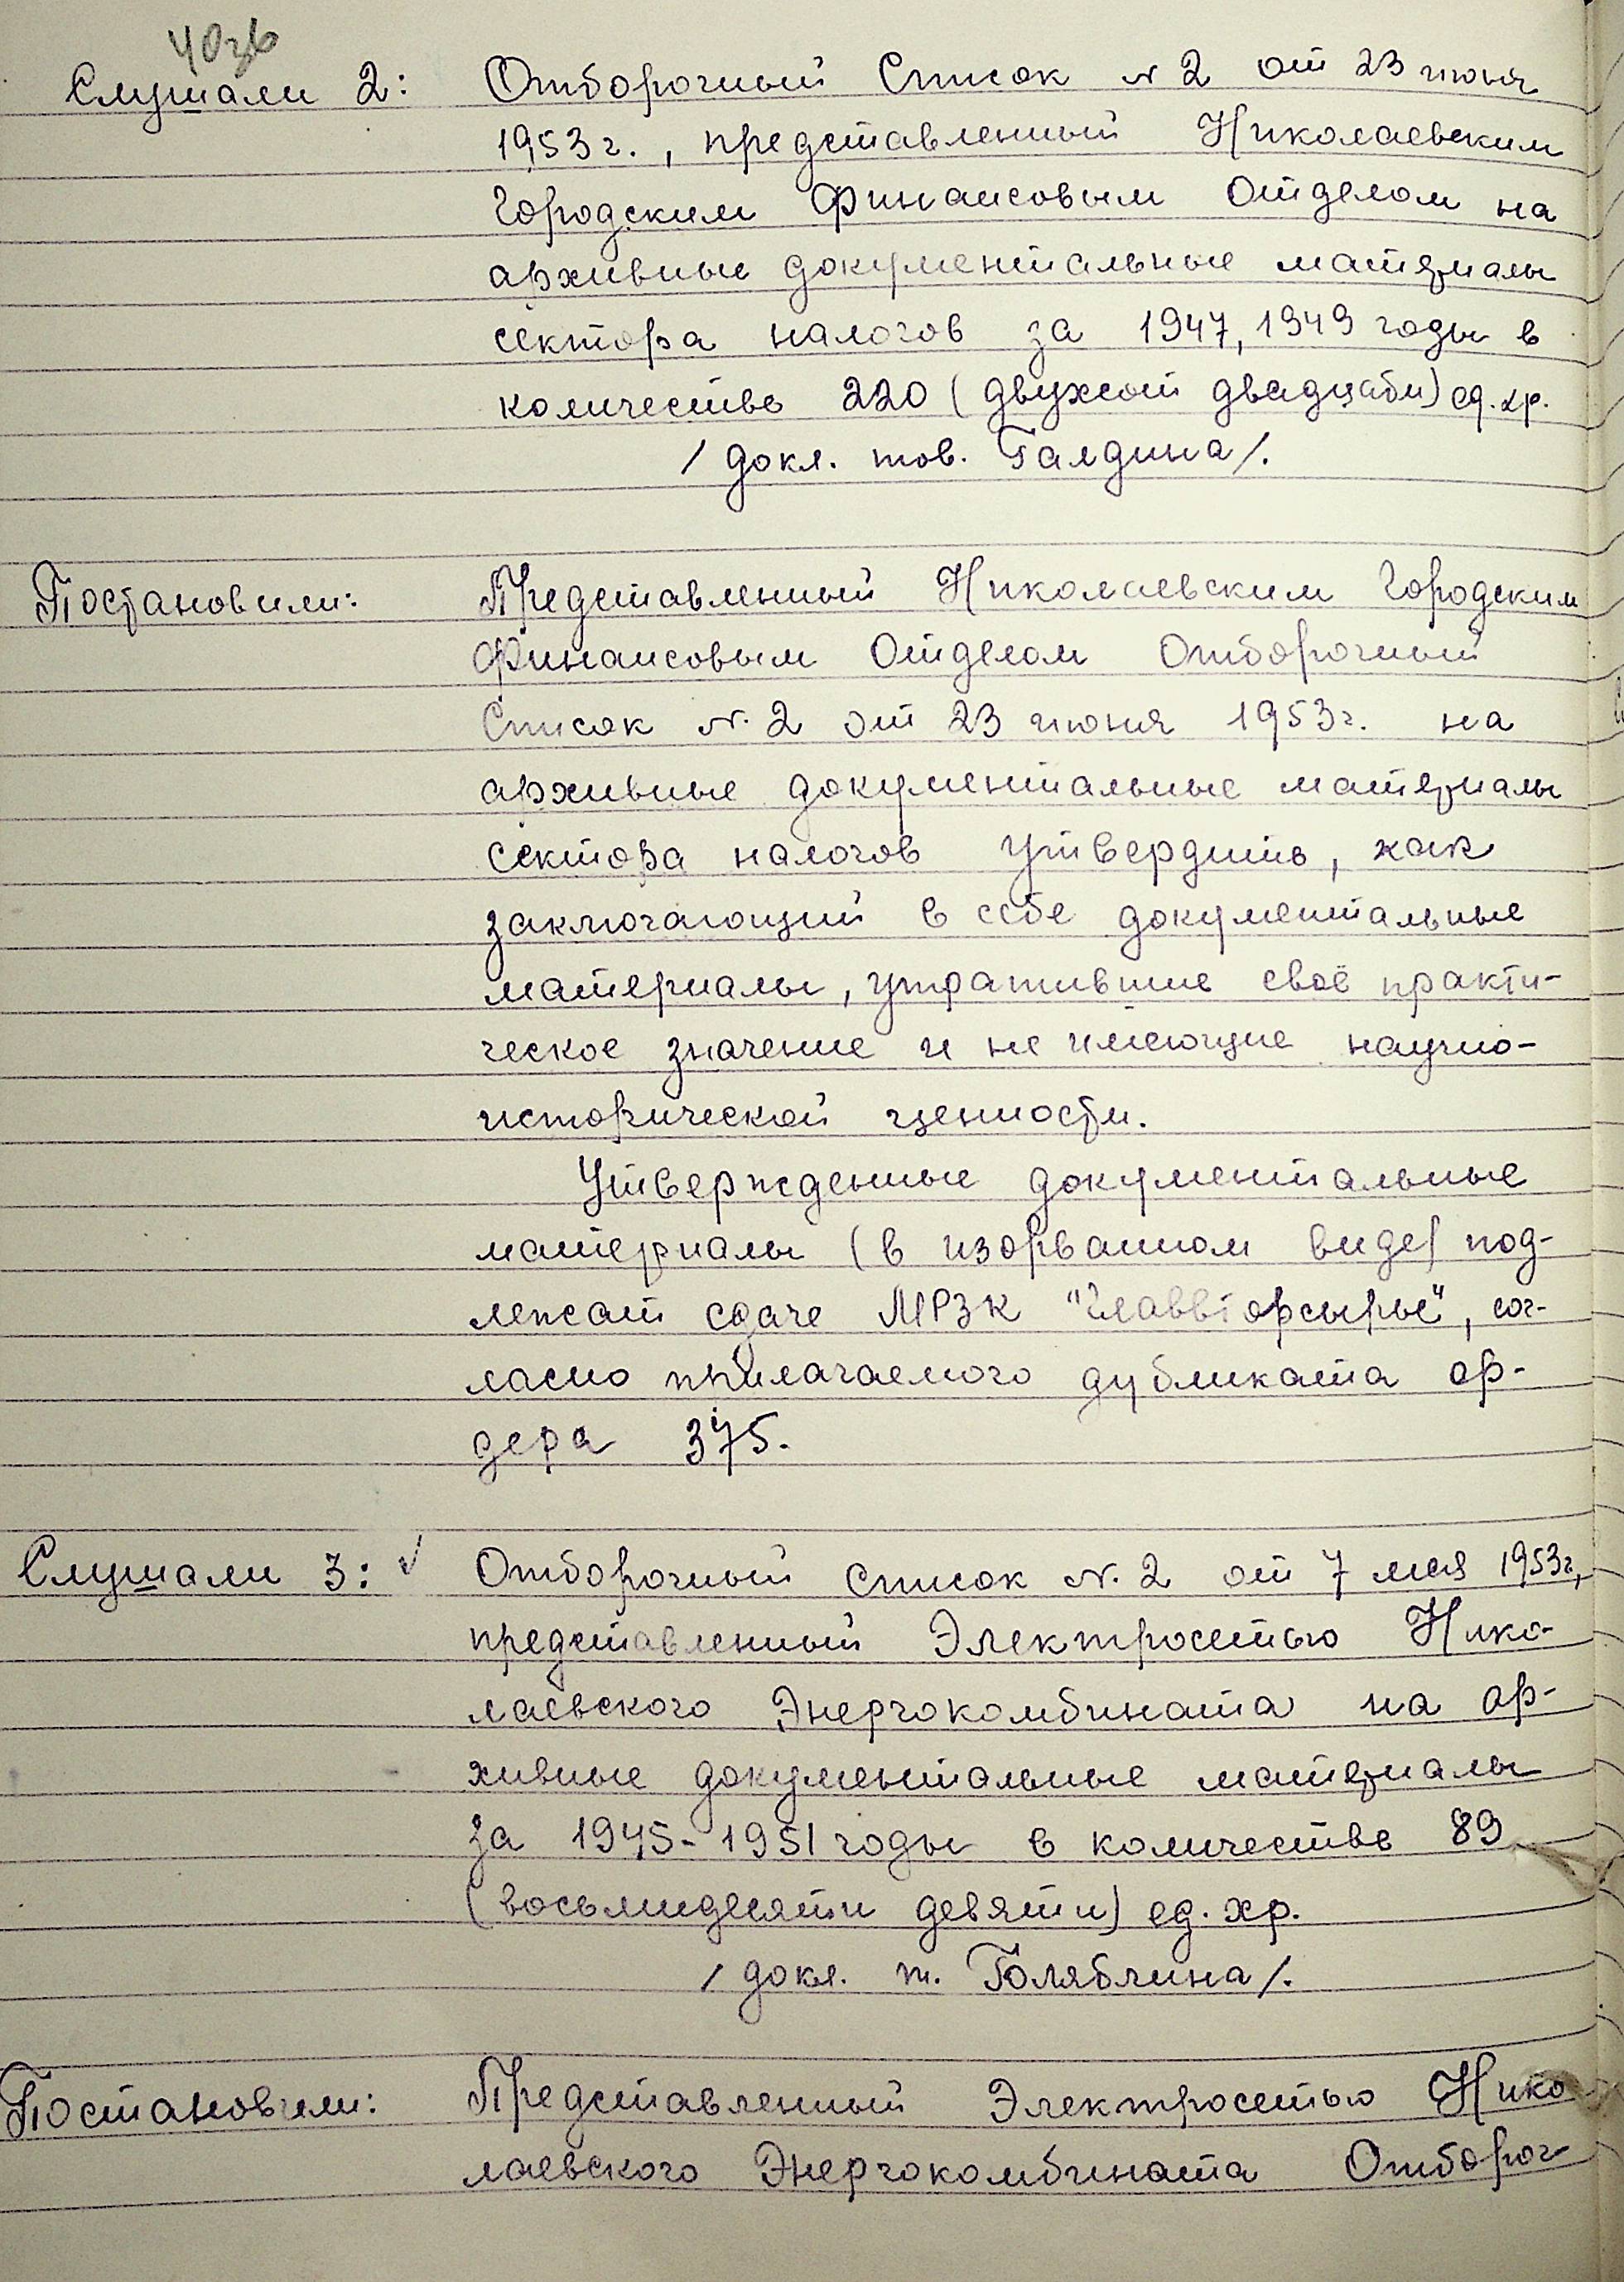 40зв
Слушали 2: Отборочный Список №2 от 23 июня
1953г., представленный Николаевским
Городским Финансовым Отделом на
архивные документальные материалы
сектора налогов за 1947, 1949 годы в
количестве 220 (двухсот двадцати) ед. хр.
/докл. тов. Галдина/.
Постановили: Представленный Николаевским Городским
Финансовым Отделом Отборочный
Список №2 от 23 июня 1953г. на
архивные документальные материалы
сектора налогов утвердить, как
заключающий в себе документальные
материалы, утратившие своё практи-
ческое значение и не имеющие научно-
исторической ценности.
Утвержденные документальные
материалы (в изорванном виде) под-
лежат сдаче МРЗК "Главвторсырье", сог-
ласно прилагаемого дубликата ор-
дера 375.
Слушали 3: ✓ Отборочный список №2 от 7 мая 1953г.,
представленный Электросетью Нико-
лаевского Энергокомбината на ар-
хивные документальные материалы
за 1945-1951 годы в количестве 89
(восьмидесяти девяти) ед. хр.
/докл. т. Голяблина/.
Постановили: Представленный Электросетью Нико
лаевского Энергокомбината Отбороч